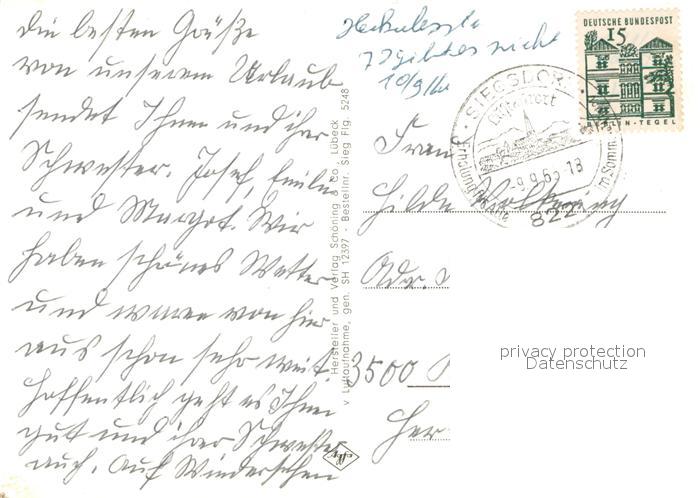 die besten Grüße
von unserem Urlaub
sendet Ihnen und ihrer
Schwester. Josef, Emilie
und Margot. Wir
haben schönes Wetter
und waren von hier
aus schon sehr weit.
Hoffentlich geht es Ihnen
gut und ihrer Schwester
auch. Auf Wiedersehen
gibt es nicht
10/9
DEUTSCHE BUNDESPOST
15
BERLIN-TEGEL
SIEGSDORF
Luftkurort
-9.9.65-18
822
Frau
Hilde
Adr.
3500
Her
Hersteller und Verlag Schöning & Co., Lübeck
v Luftaufnahme, gen. SH 12397 - Bestellnr. Sieg Flg. 5248
privacy protection
Datenschutz